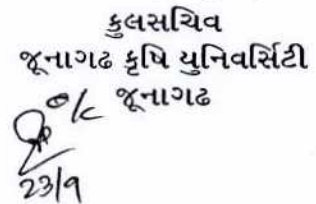 કુલસચિવ
જૂનાગઢ કૃષિ યુનિવર્સિટી
જૂનાગઢ
o/c
23/9